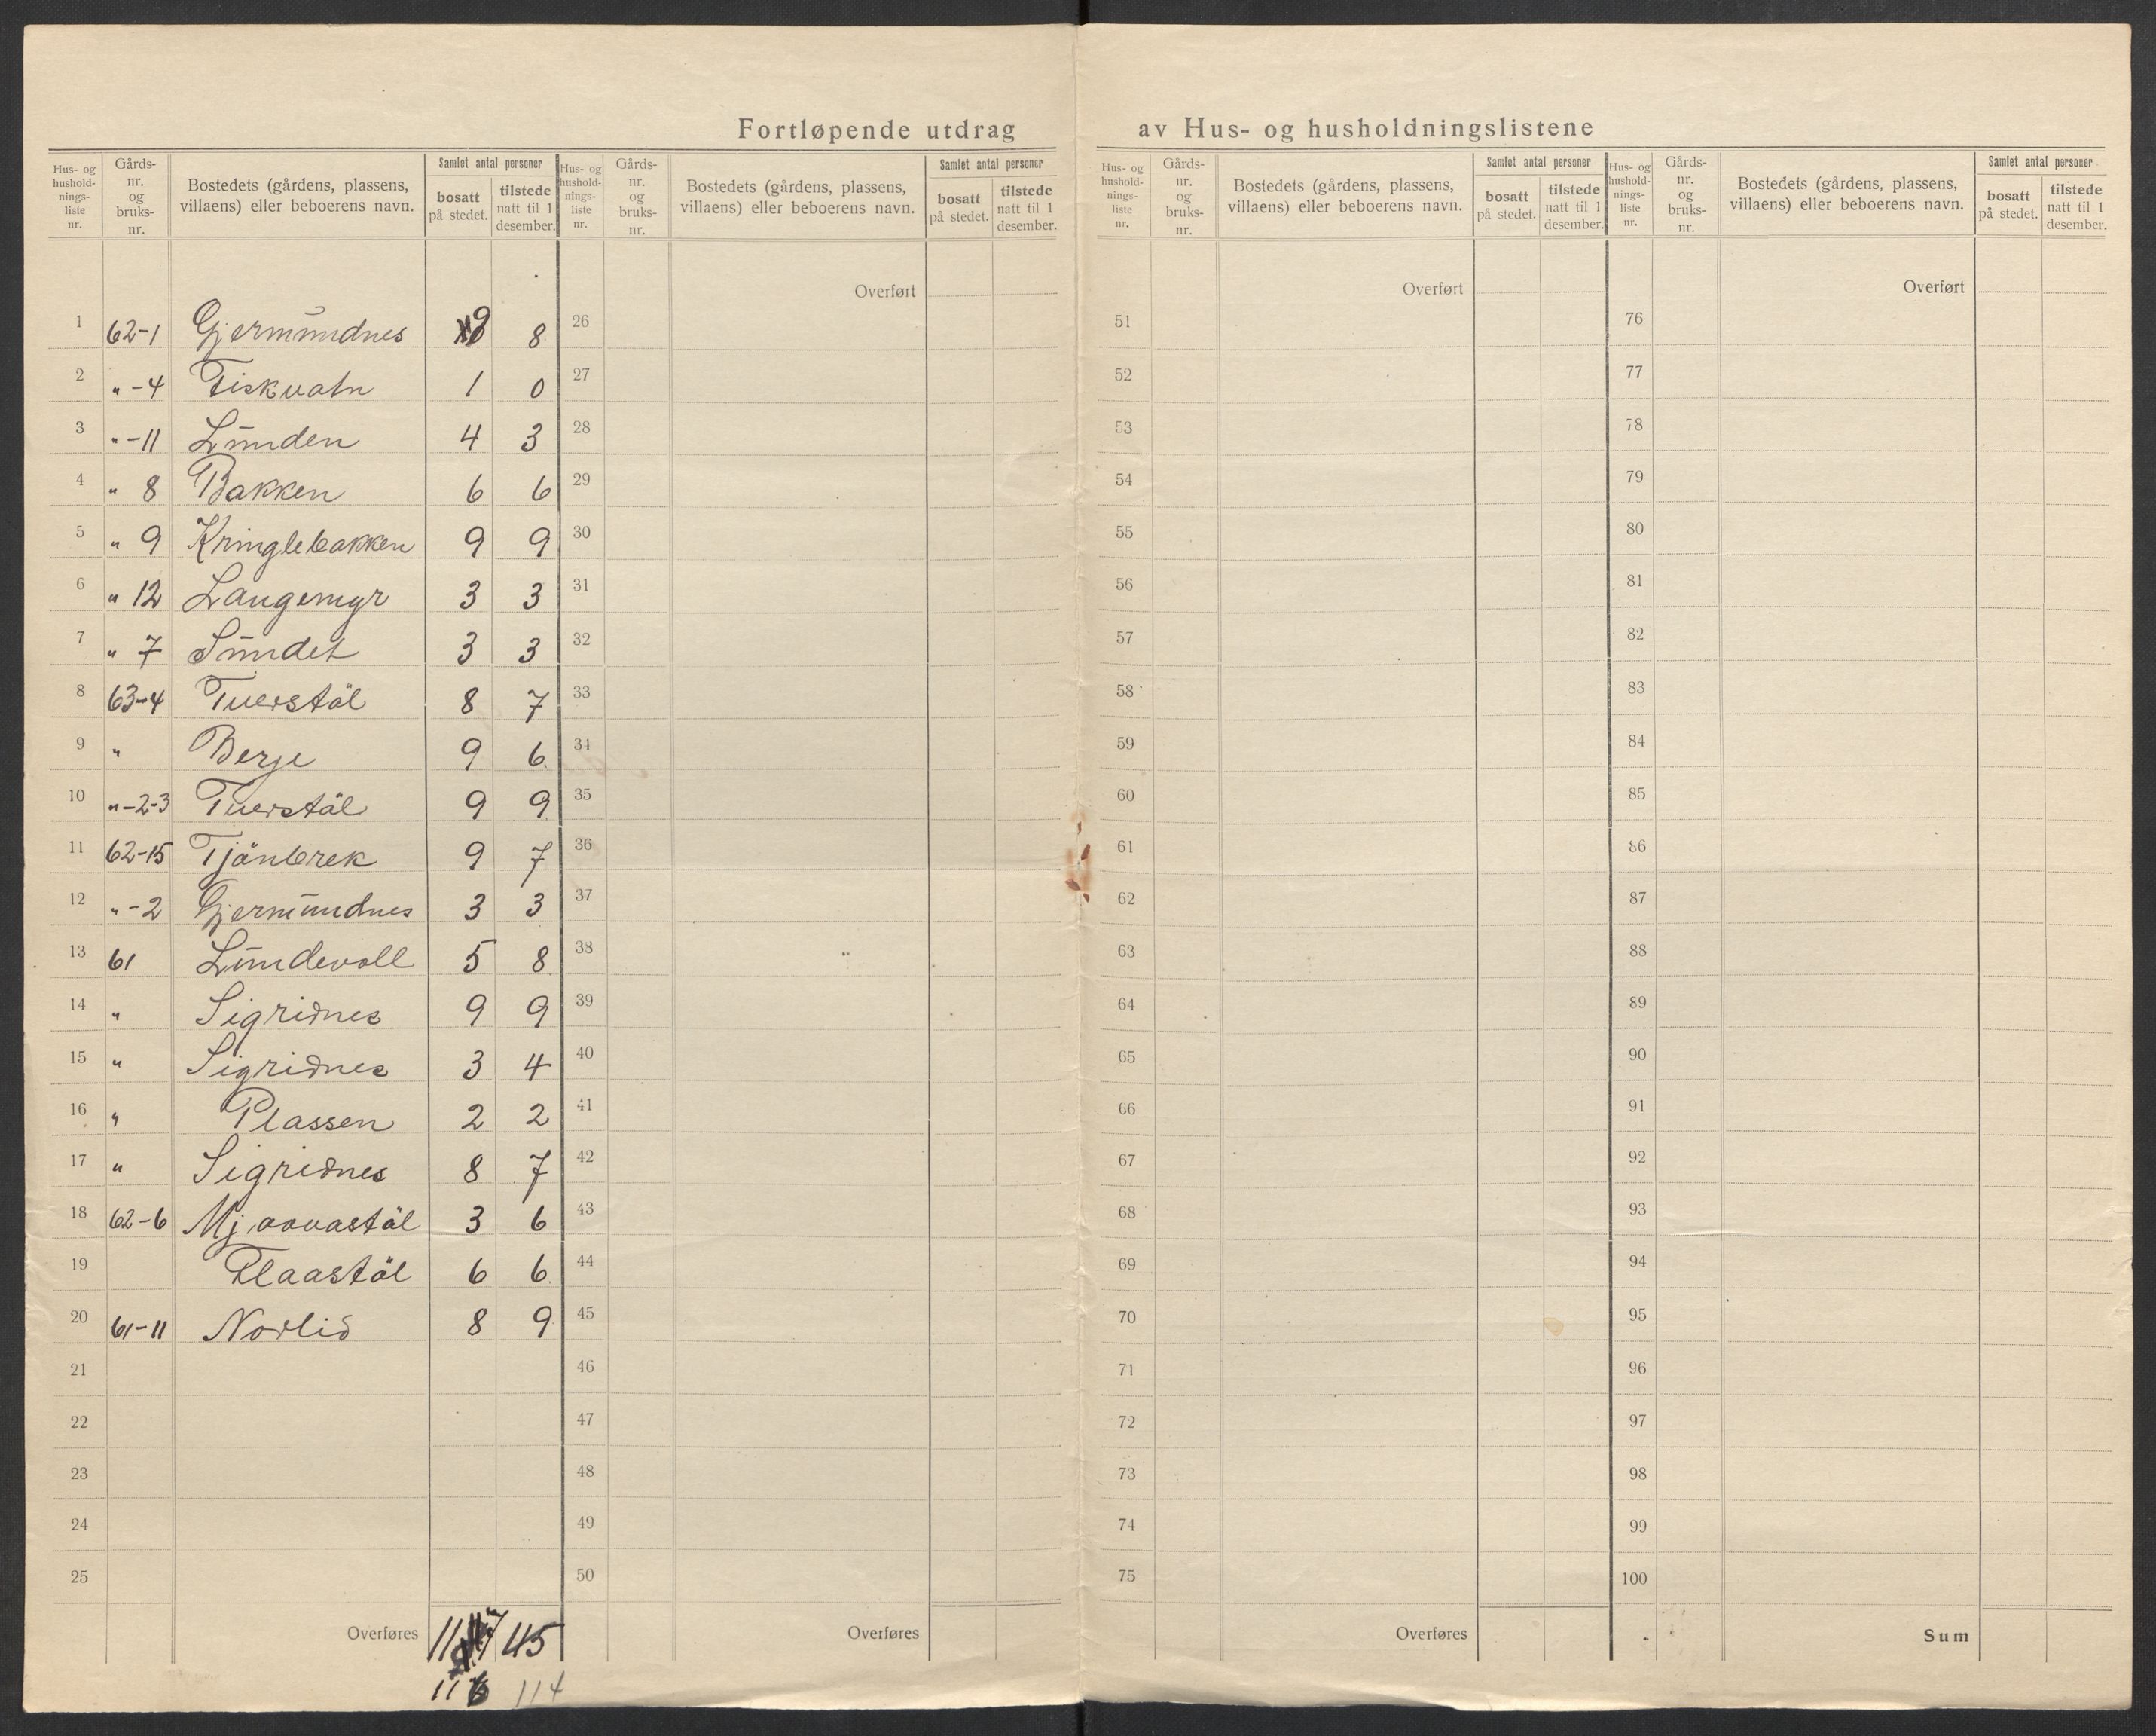 Fortløpende utdrag av Hus- og husholdningslistene
Hus- og hushold- nings- liste nr. | Gårds- nr. og bruks- nr. | Bostedets (gårdens, plassens, villaens) eller beboerens navn. | Samlet antal personer | bosatt på stedet. | tilstede natt til 1 desember.
Hus- og hushold- nings- liste nr. | Gårds- nr. og bruks- nr. | Bostedets (gårdens, plassens, villaens) eller beboerens navn. | Samlet antal personer | bosatt på stedet. | tilstede natt til 1 desember.
Hus- og hushold- nings- liste nr. | Gårds- nr. og bruks- nr. | Bostedets (gårdens, plassens, villaens) eller beboerens navn. | Samlet antal personer | bosatt på stedet. | tilstede natt til 1 desember.
Hus- og hushold- nings- liste nr. | Gårds- nr. og bruks- nr. | Bostedets (gårdens, plassens, villaens) eller beboerens navn. | Samlet antal personer | bosatt på stedet. | tilstede natt til 1 desember.
Overført Overført Overført
1 62-1 Gjermündnes 9 8 26 51 76
2 " -4 Fiskvatn 1 0 27 52 77
3 " -11 Lünden 4 3 28 53 78
4 " 8 Bakken 6 6 29 54 79
5 " 9 Kringlebakken 9 9 30 55 80
6 " 12 Langemyr 3 3 31 56 81
7 " 7 Sündet 3 3 32 57 82
8 63-4 Tverstål 8 7 33 58 83
9 " Berge 9 6 34 59 84
10 " -2-3 Tverstål 9 9 35 60 85
11 62-15 Tjönbrek 9 7 36 61 86
12 " -2 Gjermündnes 3 3 37 62 87
13 61 Lündevoll 5 8 38 63 88
14 " Sigridnes 9 9 39 64 89
15 " Sigridnes 3 4 40 65 90
16 " Plassen 2 2 41 66 91
17 " Sigridnes 8 7 42 67 92
18 62-6 Mjaavastål 3 6 43 68 93
19 Flaastål 6 6 44 69 94
20 61-11 Norlid 8 9 45 70 95
21 46 71 96
22 47 72 97
23 48 73 98
24 49 74 99
25 50 75 100
Overføres 115 Overføres Overføres Sum
116 114